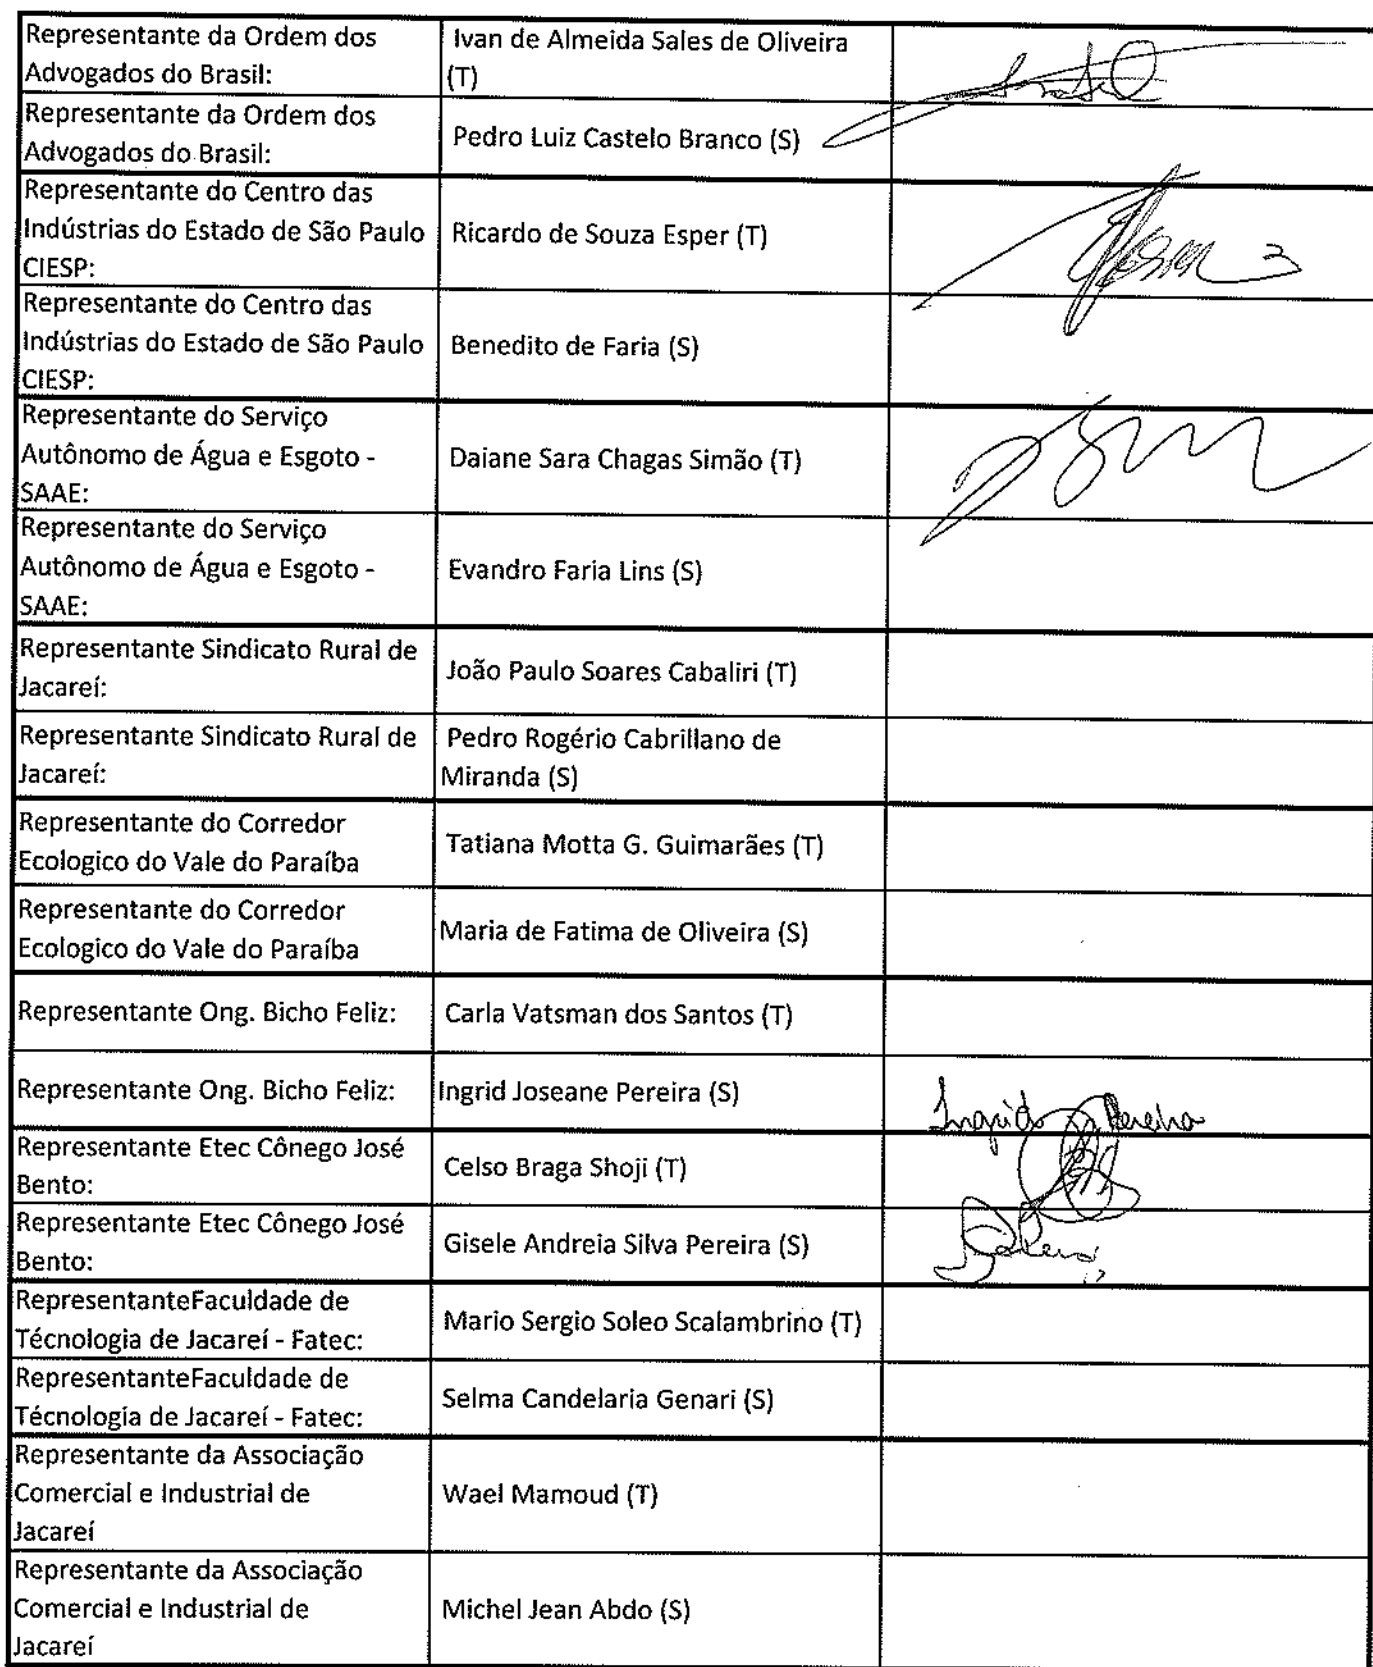 Representante da Ordem dos
Advogados do Brasil:
Ivan de Almeida Sales de Oliveira
(T)
Representante da Ordem dos
Advogados do Brasil:
Pedro Luiz Castelo Branco (S)
Representante do Centro das
Indústrias do Estado de São Paulo
CIESP:
Ricardo de Souza Esper (T)
Representante do Centro das
Indústrias do Estado de São Paulo
CIESP:
Benedito de Faria (S)
Representante do Serviço
Autônomo de Água e Esgoto -
SAAE:
Daiane Sara Chagas Simão (T)
Representante do Serviço
Autônomo de Água e Esgoto -
SAAE:
Evandro Faria Lins (S)
Representante Sindicato Rural de
Jacareí:
João Paulo Soares Cabaliri (T)
Representante Sindicato Rural de
Jacareí:
Pedro Rogério Cabrillano de
Miranda (S)
Representante do Corredor
Ecologico do Vale do Paraíba
Tatiana Motta G. Guimarães (T)
Representante do Corredor
Ecologico do Vale do Paraíba
Maria de Fatima de Oliveira (S)
Representante Ong. Bicho Feliz:
Carla Vatsman dos Santos (T)
Representante Ong. Bicho Feliz:
Ingrid Joseane Pereira (S)
Ingrid Pereira
Representante Etec Cônego José
Bento:
Celso Braga Shoji (T)
Representante Etec Cônego José
Bento:
Gisele Andreia Silva Pereira (S)
RepresentanteFaculdade de
Técnologia de Jacareí - Fatec:
Mario Sergio Soleo Scalambrino (T)
RepresentanteFaculdade de
Técnologia de Jacareí - Fatec:
Selma Candelaria Genari (S)
Representante da Associação
Comercial e Industrial de
Jacareí
Wael Mamoud (T)
Representante da Associação
Comercial e Industrial de
Jacareí
Michel Jean Abdo (S)